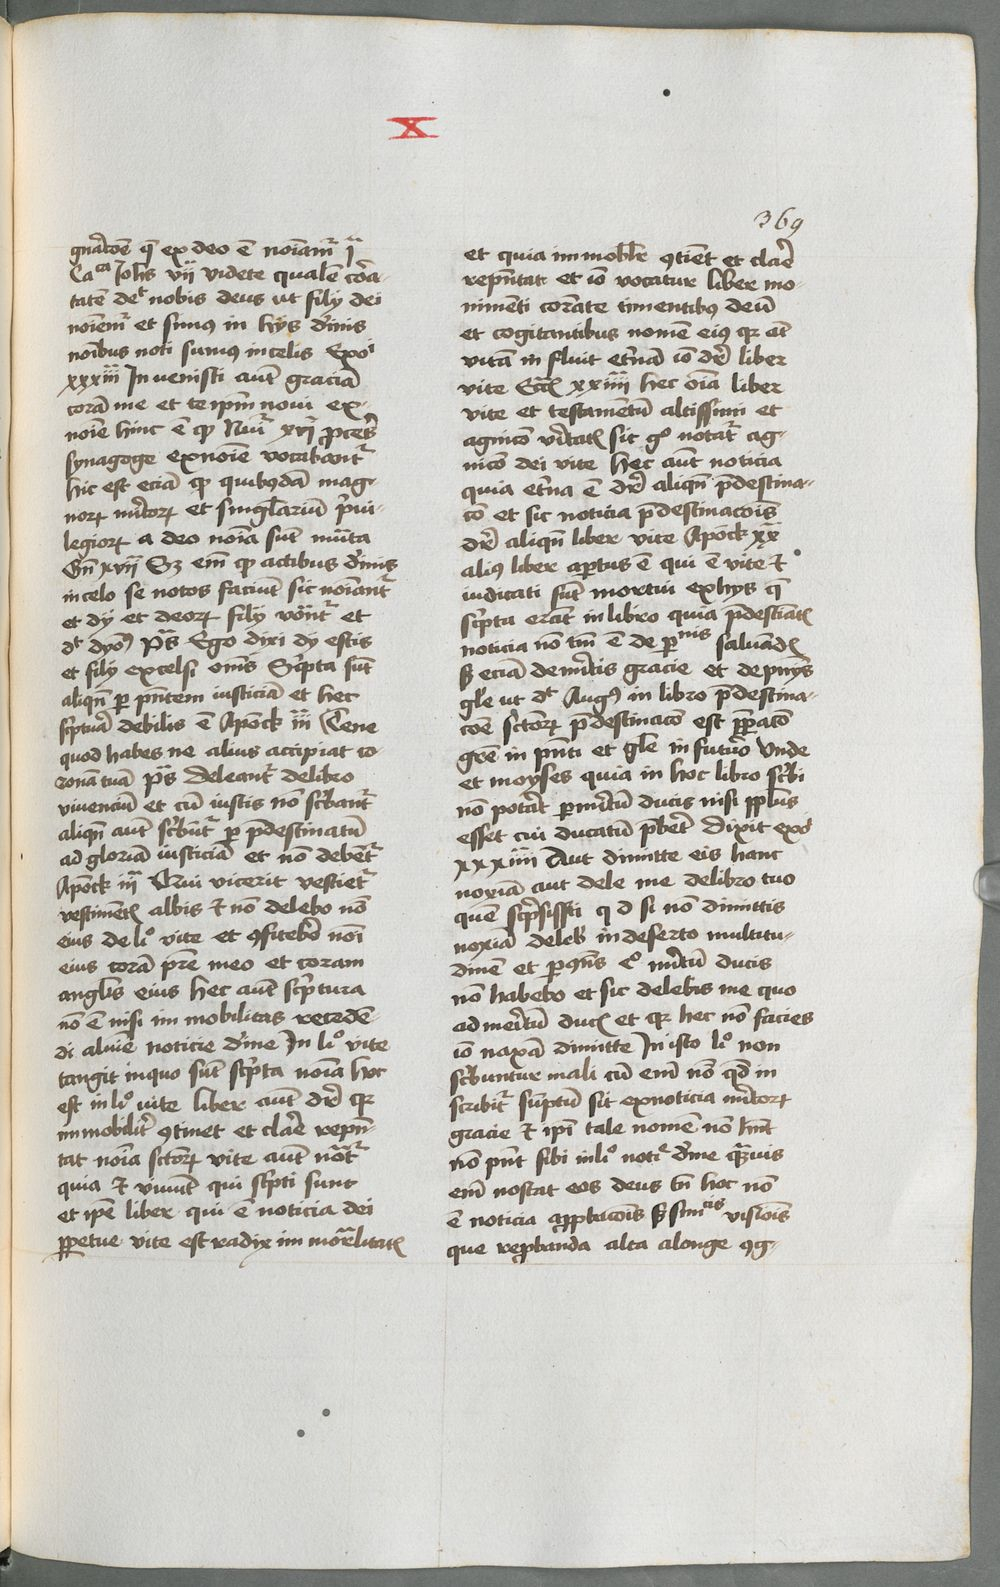 X
369
gnacōe q̄ ex deo ē noīamr̄ i
Ca Johs vij videte qualē cāri
tatē det nobis deus ut filij dei
noīemr̄ et simus in hijs d'inis
noībus noti sumus in celis Exoi
xxxiii Invenisti aut̄ graciā
corā me et te ipm̄ novi ex
noīe hinc ē qͦ Nui xvi proces
synagoge ex noīe vocabant̄
hic est eciā qͦ quibusdā mag
norꝝ mitorꝝ et singlariū p'vi
legiorꝝ a deo noīa sūt mūta
Gn̄ xvij Sꝫ em̄ qͦ actibus d'inis
in celo se notos faciūt sic noīant̄
et dij et deorꝝ filij vōnt̄ et
dt dyoꝰ p̄s Ego dixi dij estis
et filij excelsi om̄s Sc'pta sūt
aliqn̄ per pn̄tem iusticiā et hec
sc'ptura debilis ē Apock iii Tene
quod habes ne alius accipiat co
ronā tuā p̄s deleant̄ de libro
vivenciū et cū iustis nō sc'bant̄
aliqn̄ aut̄ sc'būt̄ per p̄destinatū
ad gloriā iusticiā et nō debent̄
Apock iii Qui vicerit vestiet̄
vestimētꝭ albis ⁊ nō delebo nō
eius de liͦ vite et ꝯfitebor noī
eius corā pre meo et coram
anglis eius hec aut̄ sc'ptura
nō ē nisi immobilitas recedē
di a lumie noticie d'ine In liͦ vite
tangit in quo sūt sc'pta noīa hoc
est in liͦ vite liber aut̄ dr̄ qr
immobilit̄ ꝯtinet et clare repn̄
tat noīa sctorꝝ vite aut̄ not̄
quia ⁊ vivūt qui sc'pti sunt
et ipe liber qui ē noticia dei
ppetue vite est radix immortalitatꝭ
et quia immobilr ꝯtinet et clare
repn̄tat et iō vocatur liber mo
nimēti corā te timentibus deū
et cogitantibus nomē eius qr et
vitā in fluit et'nā iō dr̄ liber
vite Ecc xxiiii hec oīa liber
vite et testamētū altissimi et
agnicō v'itatꝭ sic gͦ notat̄ ag
nicō dei vite hec aut̄ noticia
quia et'na ē dr̄ aliqn̄ p̄destina
cō et sic noticia p̄destinacōis
dr̄ aliqn̄ liber vite Apock xx
alius liber aptus ē qui ē vite ⁊ͦ
iudicati sūt mortui ex hijs q̄
sc'pta erāt in libro quia p̄destiātꝭ
noticia nō tm̄ ē de p̄nis salvandꝭ
sꝫ eciā de mitis gracie et de p̄mijs
gle ut dt Augꝰ in libro p̄destina
cōe sctorꝝ p̄destinacō est p̄pacō
grē in pn̄ti et gle in futuro Unde
et moyses quia in hoc libro sc'bi
nō potat p̄ mitū ducis nisi pplus
esset cui ducatū p̄bet dixit exo
xxxiiii Aut dimitte eis hanc
noxiā aut dele me de libro tuo
quē sc'psisti q d si nō dimittis
noxiā delebis in deserto multitu
dinē et p ꝯn̄s eͦ mitū ducis
nō habebo et sic delebis me quo
ad meritū ducꝭ et qr hec nō facies
iō naxā dimitte In isto liͦ non
sc'buntur mali cū em̄ nō qd in
scribit̄ sūptū sit ex noticia mitorꝝ
gracie ⁊ ipi tale nomē nō hn̄t
nō pn̄t sibi in liͦ noti d'ine q̄mvis
em̄ noscat eos deus tn̄ hoc nō
ē noticia approbacōis sꝫ simcis visiōis
que reprobanda alta a longe ꝯg